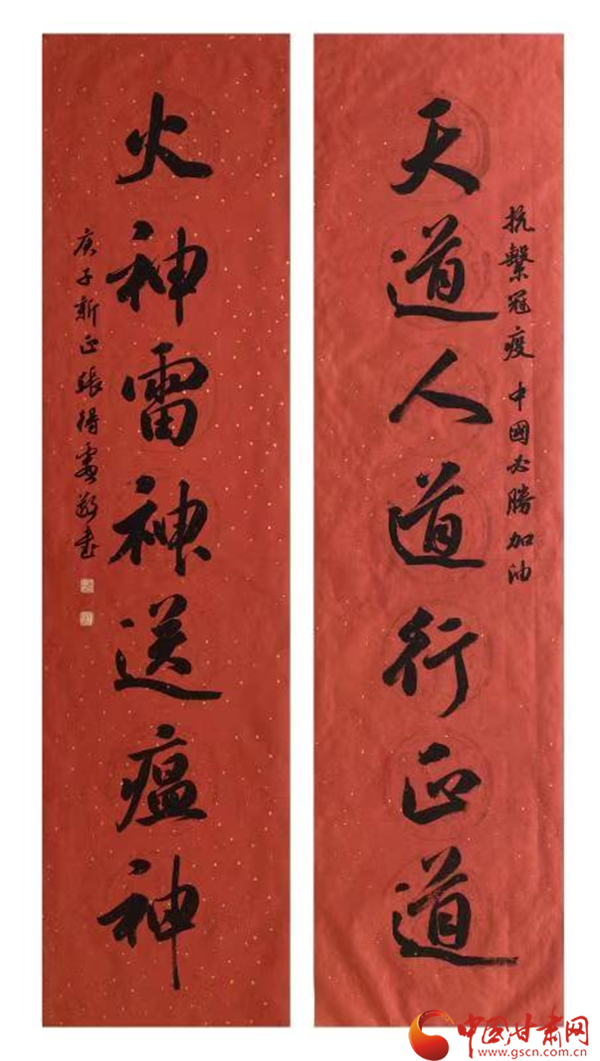 天道人道行正道
抗擊冠疫 中國必勝加油
火神雷神送瘟神
庚子新正張得
敬書
中国甘肃网
www.gscn.com.cn